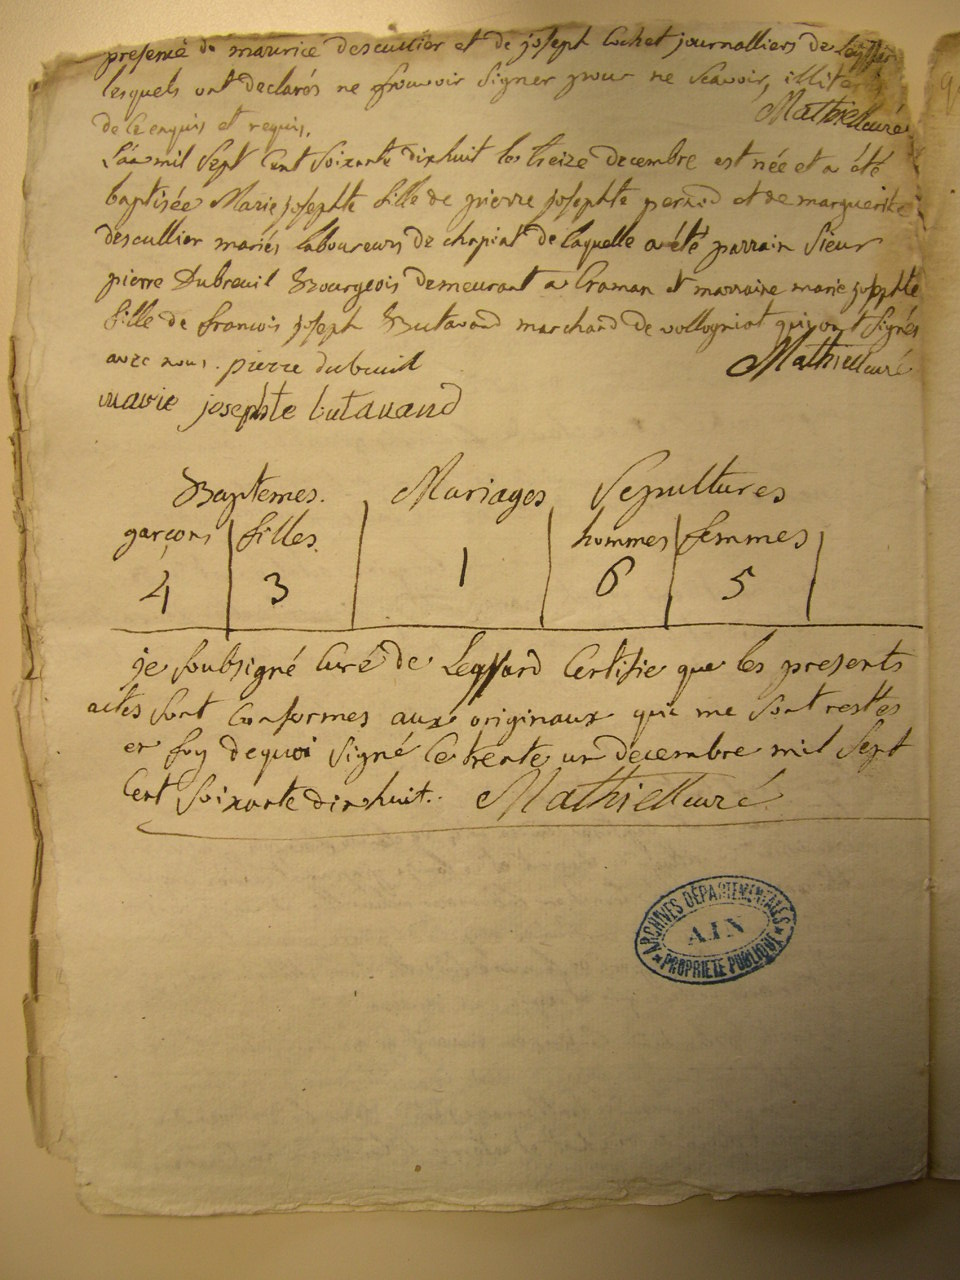 presence de maurice descullier et de joseph Cochet journalliers de Leyssard
lesquels ont declarés ne pouvoir signer pour ne scavoir, illiterés
de ce enquis et requis. Mathieu curé
L'an mil sept cent soixante dixhuit les treize decembre est née et a été
baptisée Marie josephte fille de pierre josephte perand et de marguerite
descullier mariés laboureurs de chapiat de laquelle a été parrain sieur
pierre Dubreuil Bourgeois demeurant a Craman et marraine marie josephte
fille de francois joseph Butavand marchand de vollogniat qui ont signés
avec nous. pierre dubreuil Mathieu curé
marie josephte butavand
Baptemes. Mariages Sepultures
garçons filles. hommes femmes
4 3 1 6 5
je soubsigné Curé de Leyssard Certifie que les presents
actes sont conformes aux originaux qui me sont restés
en foy dequoi signé Ce trente un decembre mil sept
Cent soixante dixhuit.. Mathieu curé
ARCHIVES DÉPARTEMENTALES
AIN
PROPRIÉTÉ PUBLIQUE